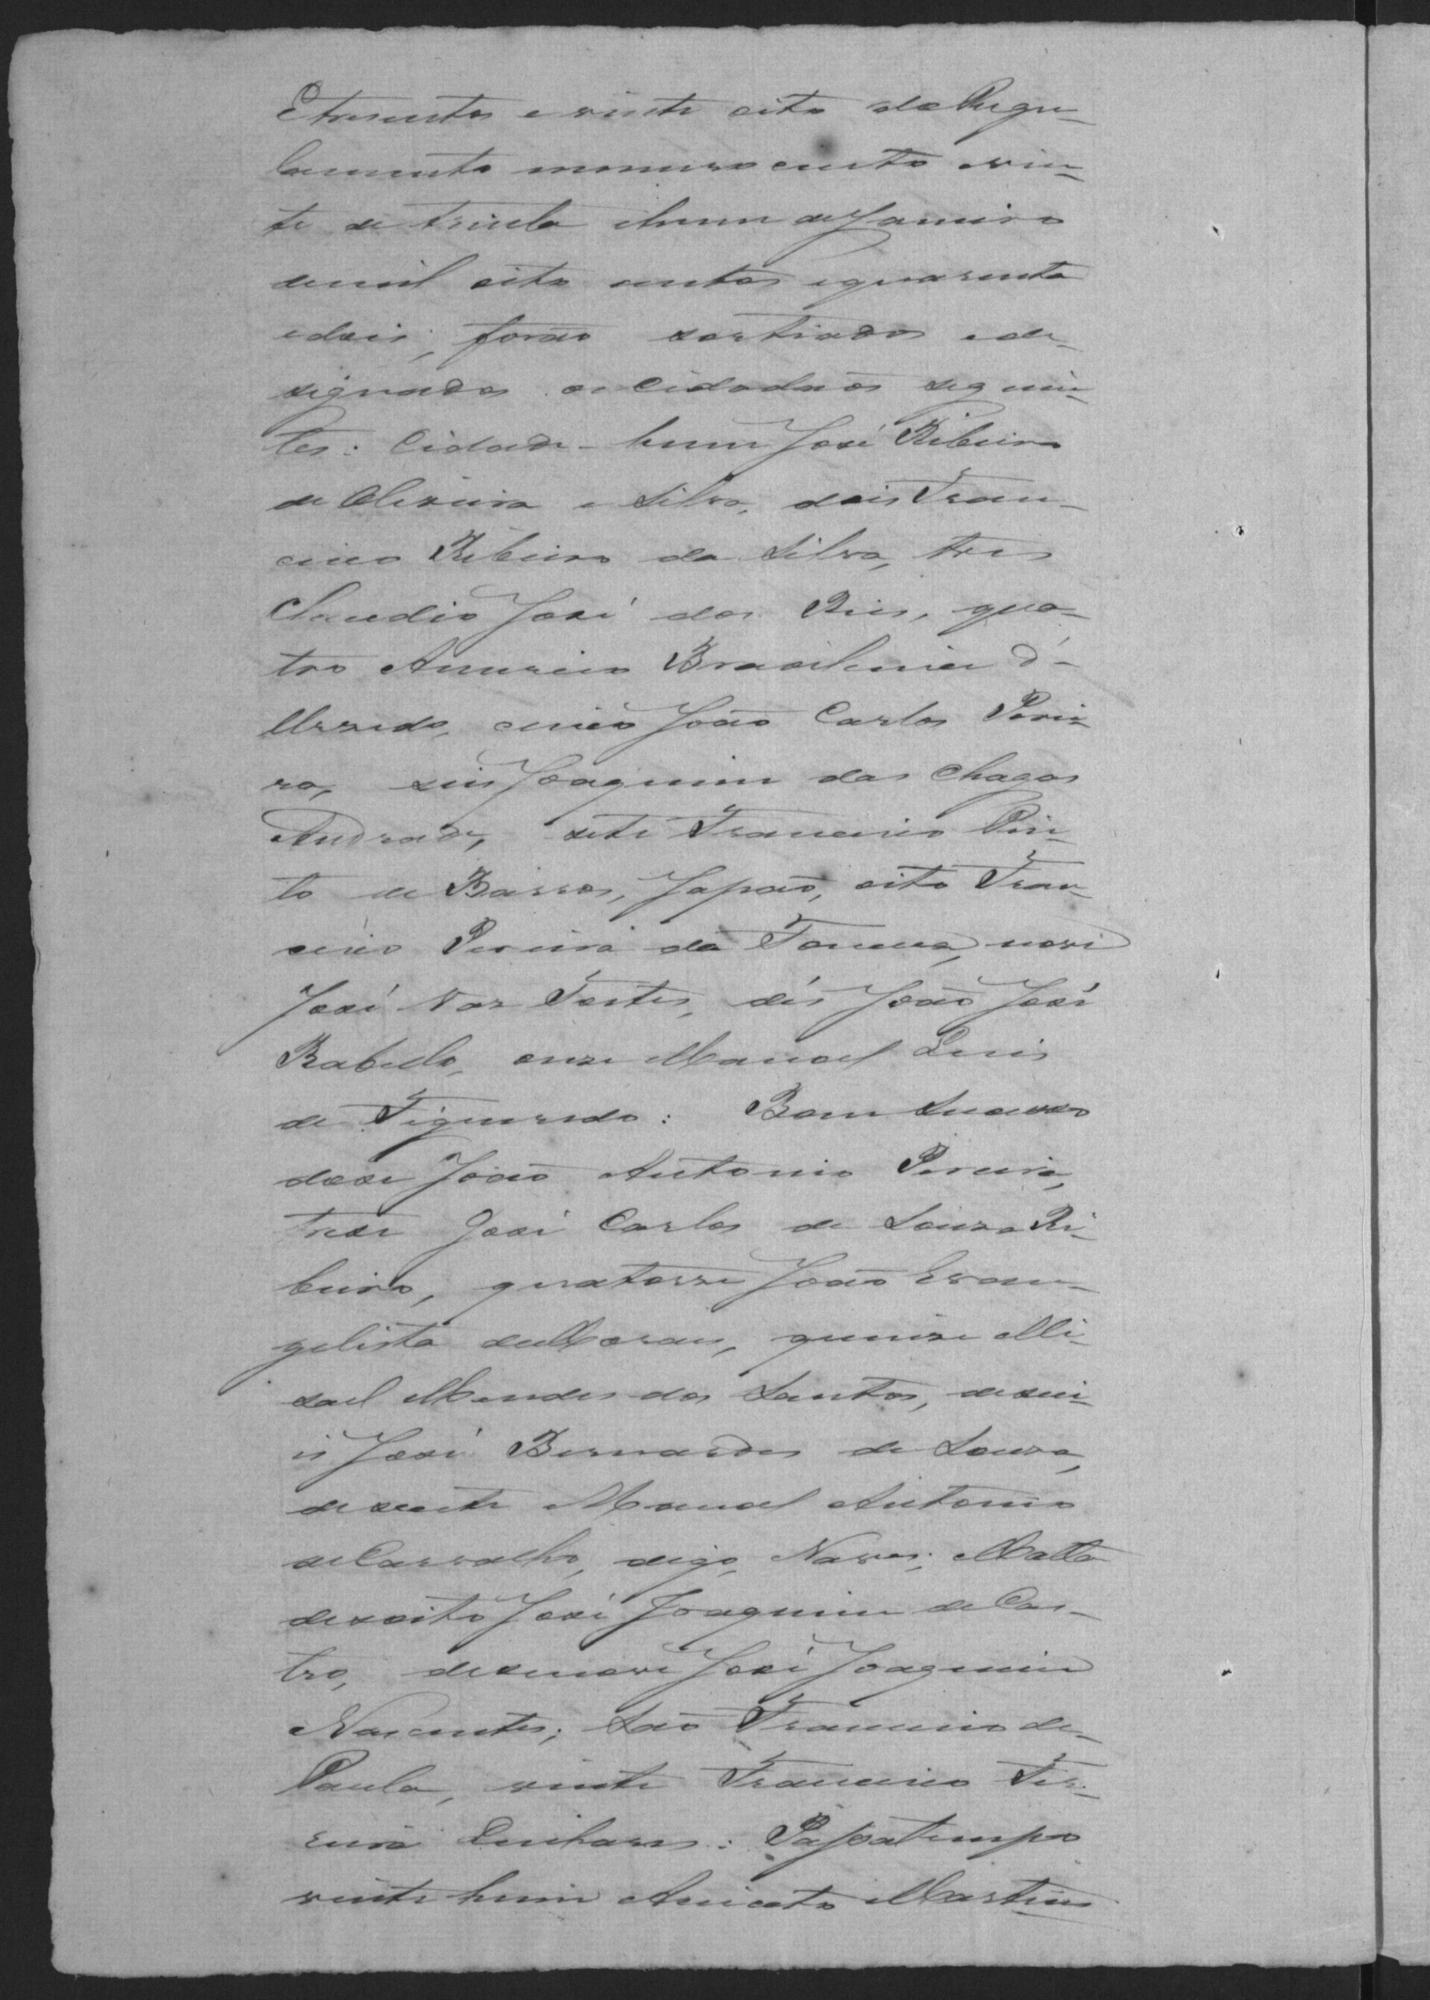 e tresentos e vinte oito do Regu-
lamento numero cento e vin-
te de trinta e hum de Janeiro
de mil oito centos e quarenta
e dois, forão sortiados e de-
signados os Cidadaõs seguin-
tes: Cidade - hum José Ribeiro
de Oliveira e Silva, dois Fran-
cisco Ribeiro da Silva, tres
Claudio José dos Reis, qua-
tro Americo Brasilense d'-
Azevedo, cinco João Carlos Perei-
ra, seis Joaquim das Chagas
Andrade, sete Francisco Pin-
to de Barros, Japaõ, oito Fran-
cisco Pereira da Fonseca, nove
José Vas Fortes, dés João José
Rabello, onze Manoel Luis
de Figueredo: Bom Sucesso
dose João Antonio Pereira,
trese José Carlos de Souza Ri-
beiro, quatorze João Evan-
gelista de Moraes, quinze Mi-
sael Mendes dos Santos, desesei-
is José Bernardes de Souza,
desesete Manoel Antonio
de Carvalho, digo, Naves; Matta
desoito José Joaquim de Cas-
tro, desenove José Joaquim
Nascentes; São Francisco de-
Paula, vinte Francisco Fer-
reira : Passatempo
vinte hum Aniceto Martins